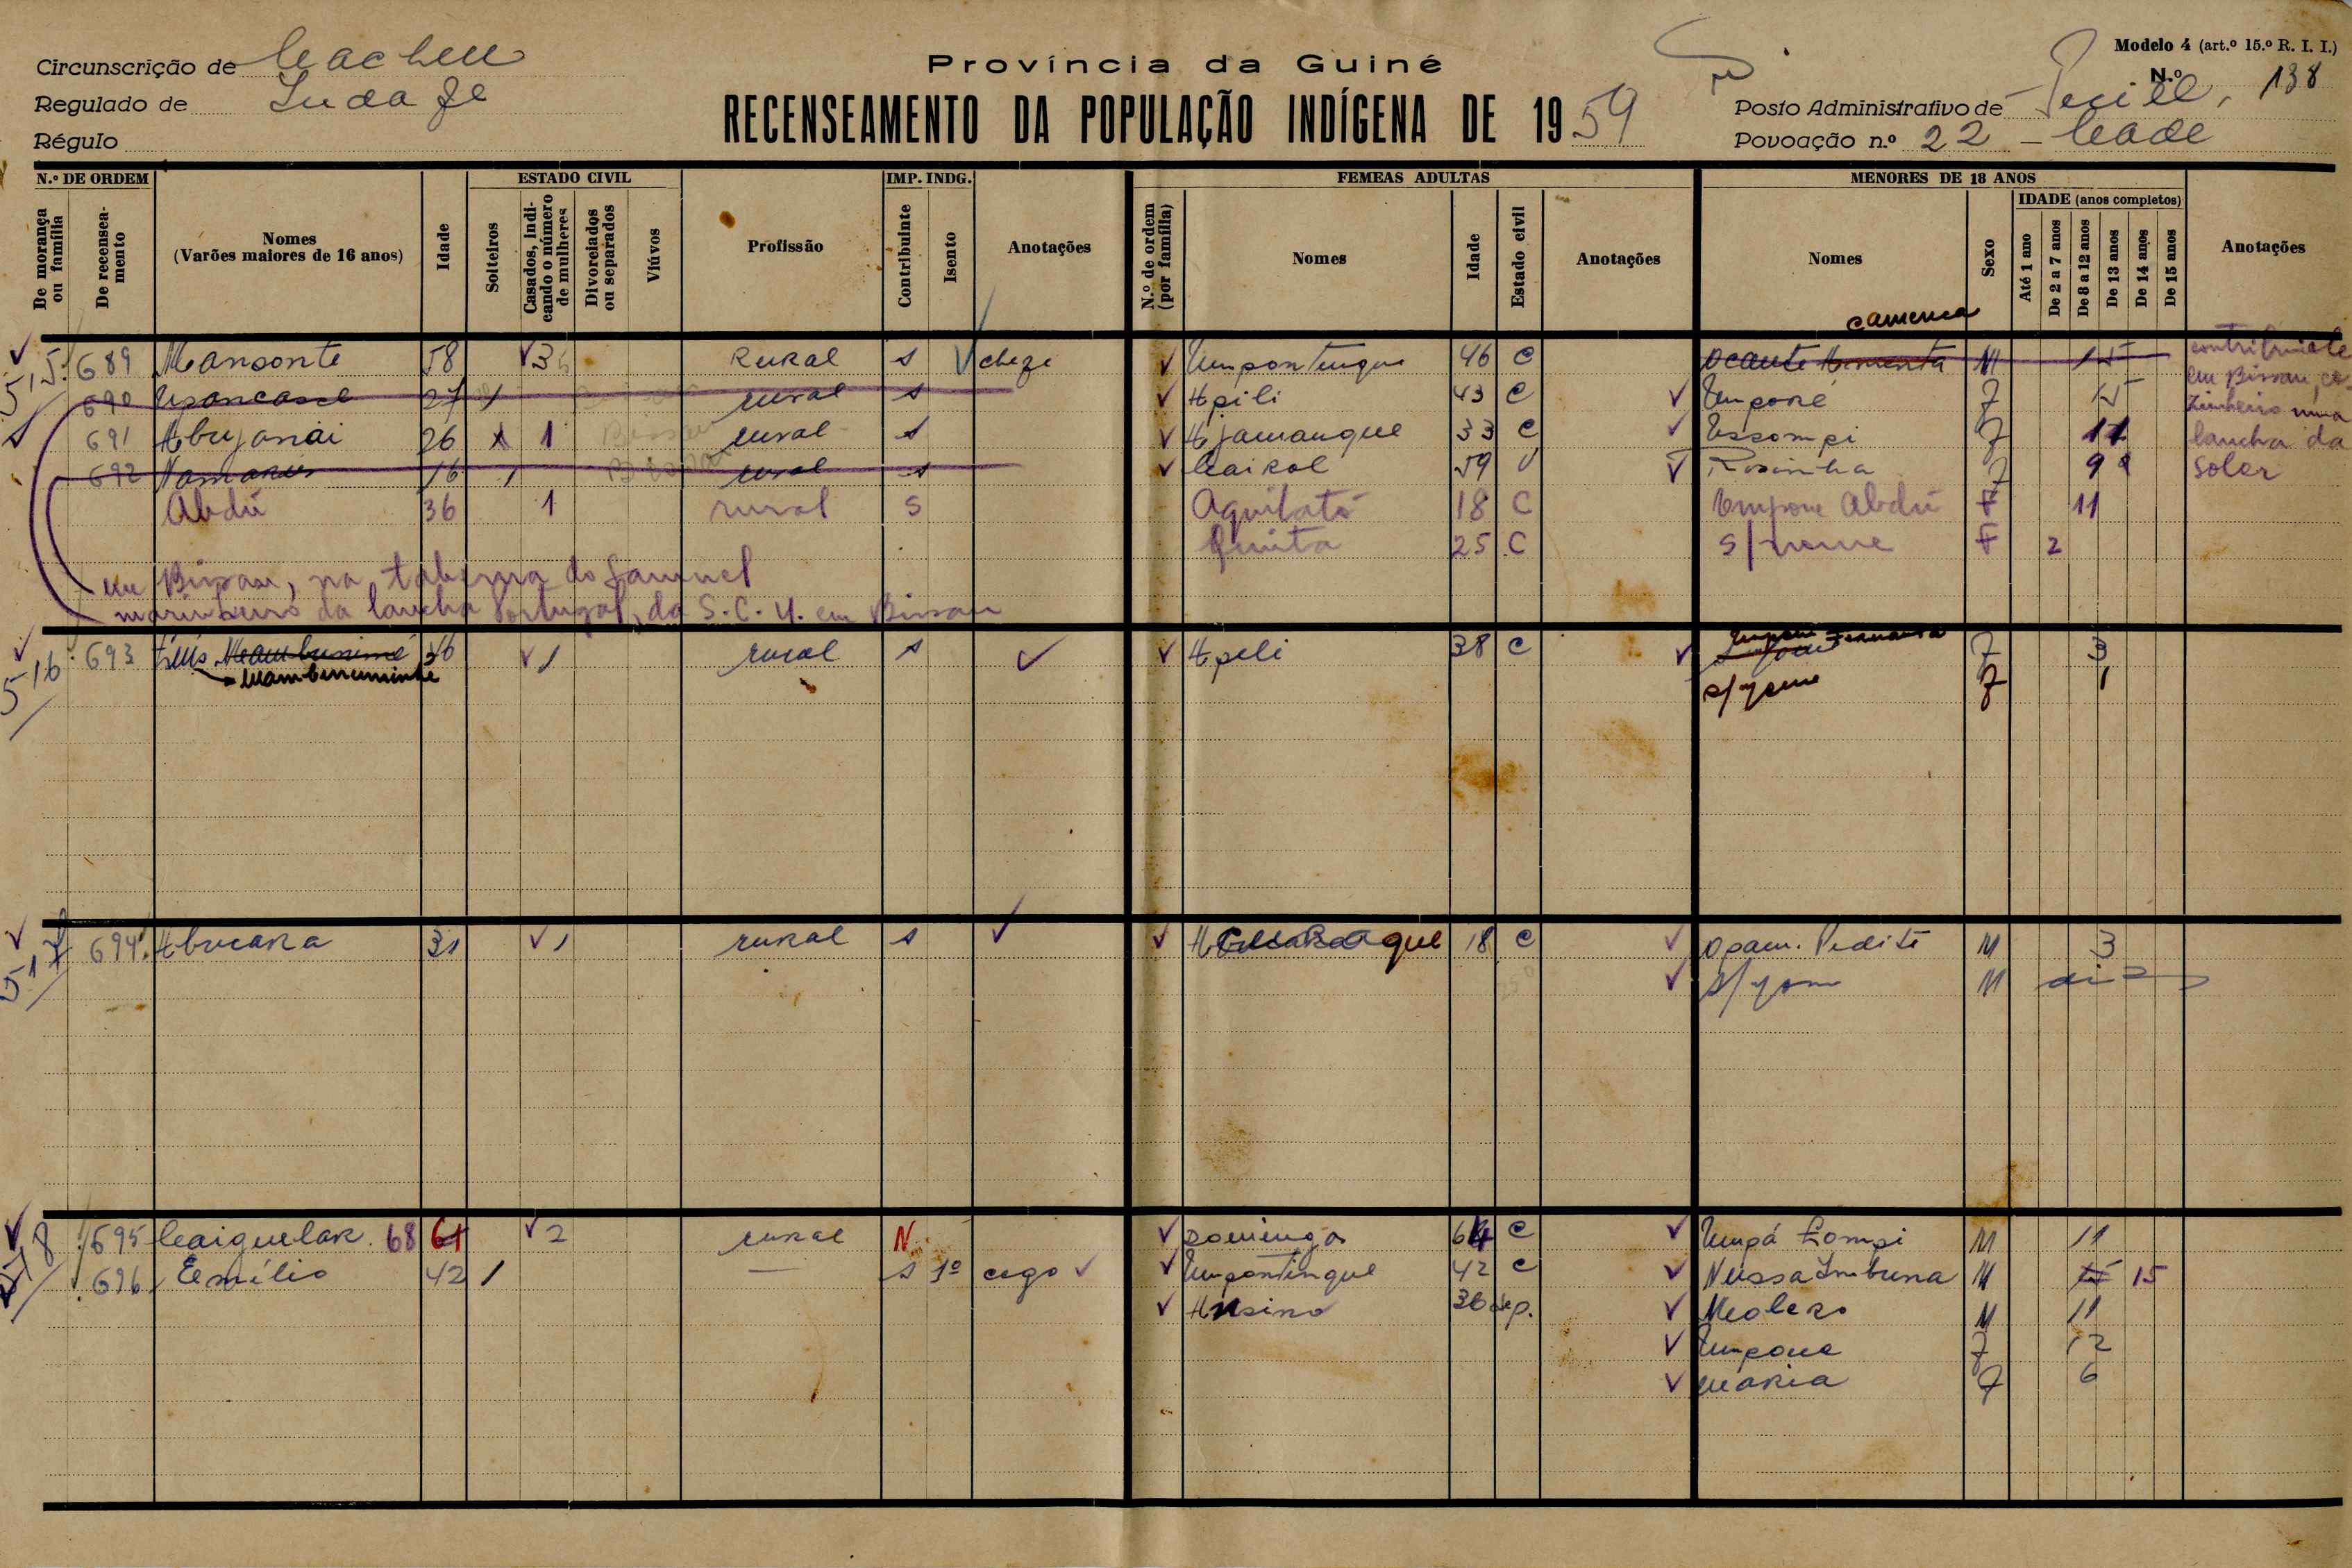 Província da Guiné
RECENSEAMENTO DA POPULAÇÃO INDÍGENA DE 1959
Circunscrição de Cacheu
Regulado de
Régulo
Modelo 4 (art.º 15.º R. I. I.)
N.º 138
Posto Administrativo de
Povoação n.º 22 – Cade
N.º DE ORDEM
De morança ou família
De recenseamento
Nomes (Varões maiores de 16 anos)
Idade
ESTADO CIVIL
Solteiros
Casados, indicando o número de mulheres
Divorciados ou separados
Viúvos
Profissão
IMP. INDG.
Contribuinte
Isento
Anotações
FEMEAS ADULTAS
N.º de ordem (por família)
Nomes
Idade
Estado civil
Anotações
MENORES DE 18 ANOS
Nomes
Sexo
IDADE (anos completos)
Até 1 ano
De 2 a 7 anos
De 8 a 12 anos
De 13 anos
De 14 anos
De 15 anos
Anotações
515 689 Mansonte 58 3 Rural s chefe Umpontingue 46 C M 15 contribuinte
em Bissau, co
zinheiro numa
lancha da
Soler
690 27 rural s Apili 43 C Umponé F 15
691 26 1 Bissau rural s Ajamangue 33 C Essompi F 11
692 16 Bissau rural s Cairol 59 V Rosinha F 9
Abdú 36 1 rural s Aquilató 18 C Umpone Abdú F 11
Quinta 25 C s/nome F 2
em Bissau, na taberna do Samuel
marinheiro da lancha Portugal, da S. C. U. em Bissau
516 693 46 1 rural s Apeli 38 C F 3
s/nome F 1
517 694 Abucara 31 1 rural s 18 C M 3
s/nom M
518 695 Caiguelar 68 61 2 rural N Domingas 64 C M 11
696 Emílio 42 1 — s 1º cego Umpontingue 42 C M 15 15
36 sep. M 11
Umpone F 12
Maria F 6